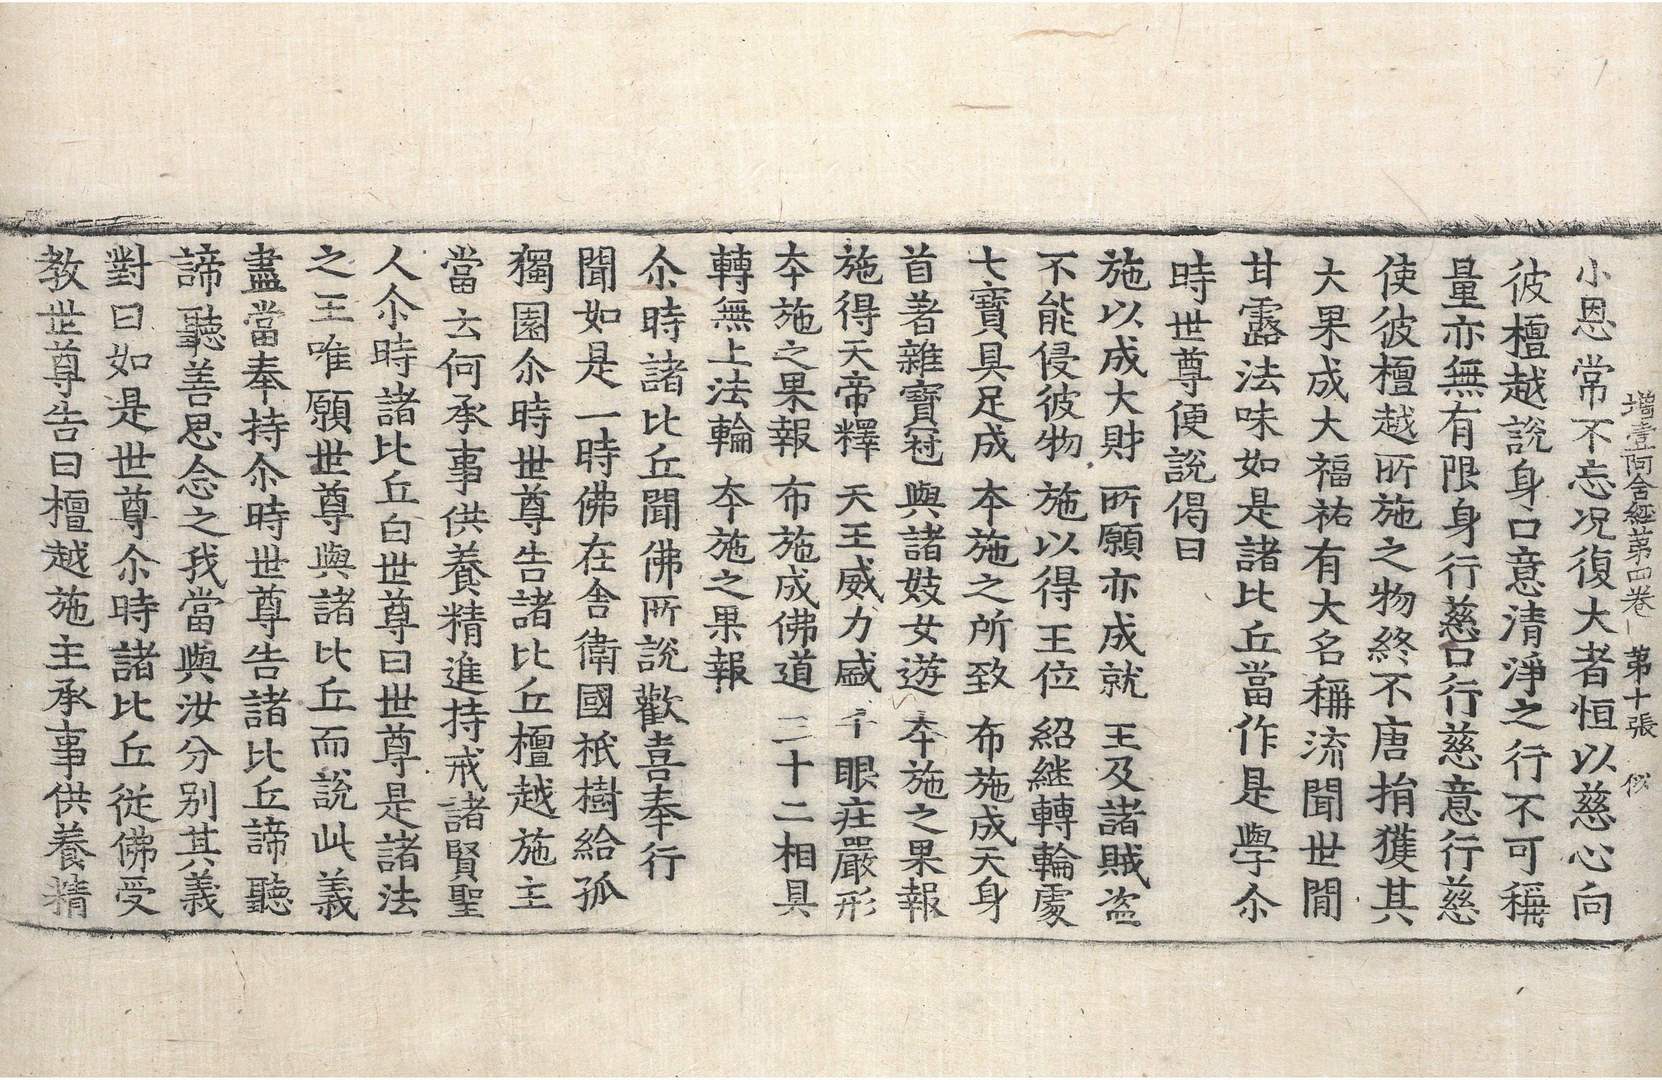 增壹阿含經第四卷 第十張 似
小恩常不忘況復大者恒以慈心向
彼檀越說身口意清淨之行不可稱
量亦無有限身行慈口行慈意行慈
使彼檀越所施之物終不唐捐獲其
大果成大福祐有大名稱流聞世間
甘露法味如是諸比丘當作是學尒
時世尊便說偈曰
施以成大財 所願亦成就 王及諸賊盜
不能侵彼物 施以得王位 紹継轉輪處
七寶具足成 夲施之所致 布施成天身
首著雜寶冠 與諸妓女遊 夲施之果報
施得天帝釋 天王威力盛 千眼庄嚴形
夲施之果報 布施成佛道 三十二相具
轉無上法輪 夲施之果報
尒時諸比丘聞佛所說歡喜奉行
聞如是一時佛在舎衛國祇樹給孤
獨園尒時世尊告諸比丘檀越施主
當云何承事供養精進持戒諸賢聖
人尒時諸比丘白世尊曰世尊是諸法
之王唯願世尊與諸比丘而說此義
盡當奉持尒時世尊告諸比丘諦聽
諦聽善思念之我當與汝分別其義
對曰如是世尊尒時諸比丘從佛受
教世尊告曰檀越施主承事供養精